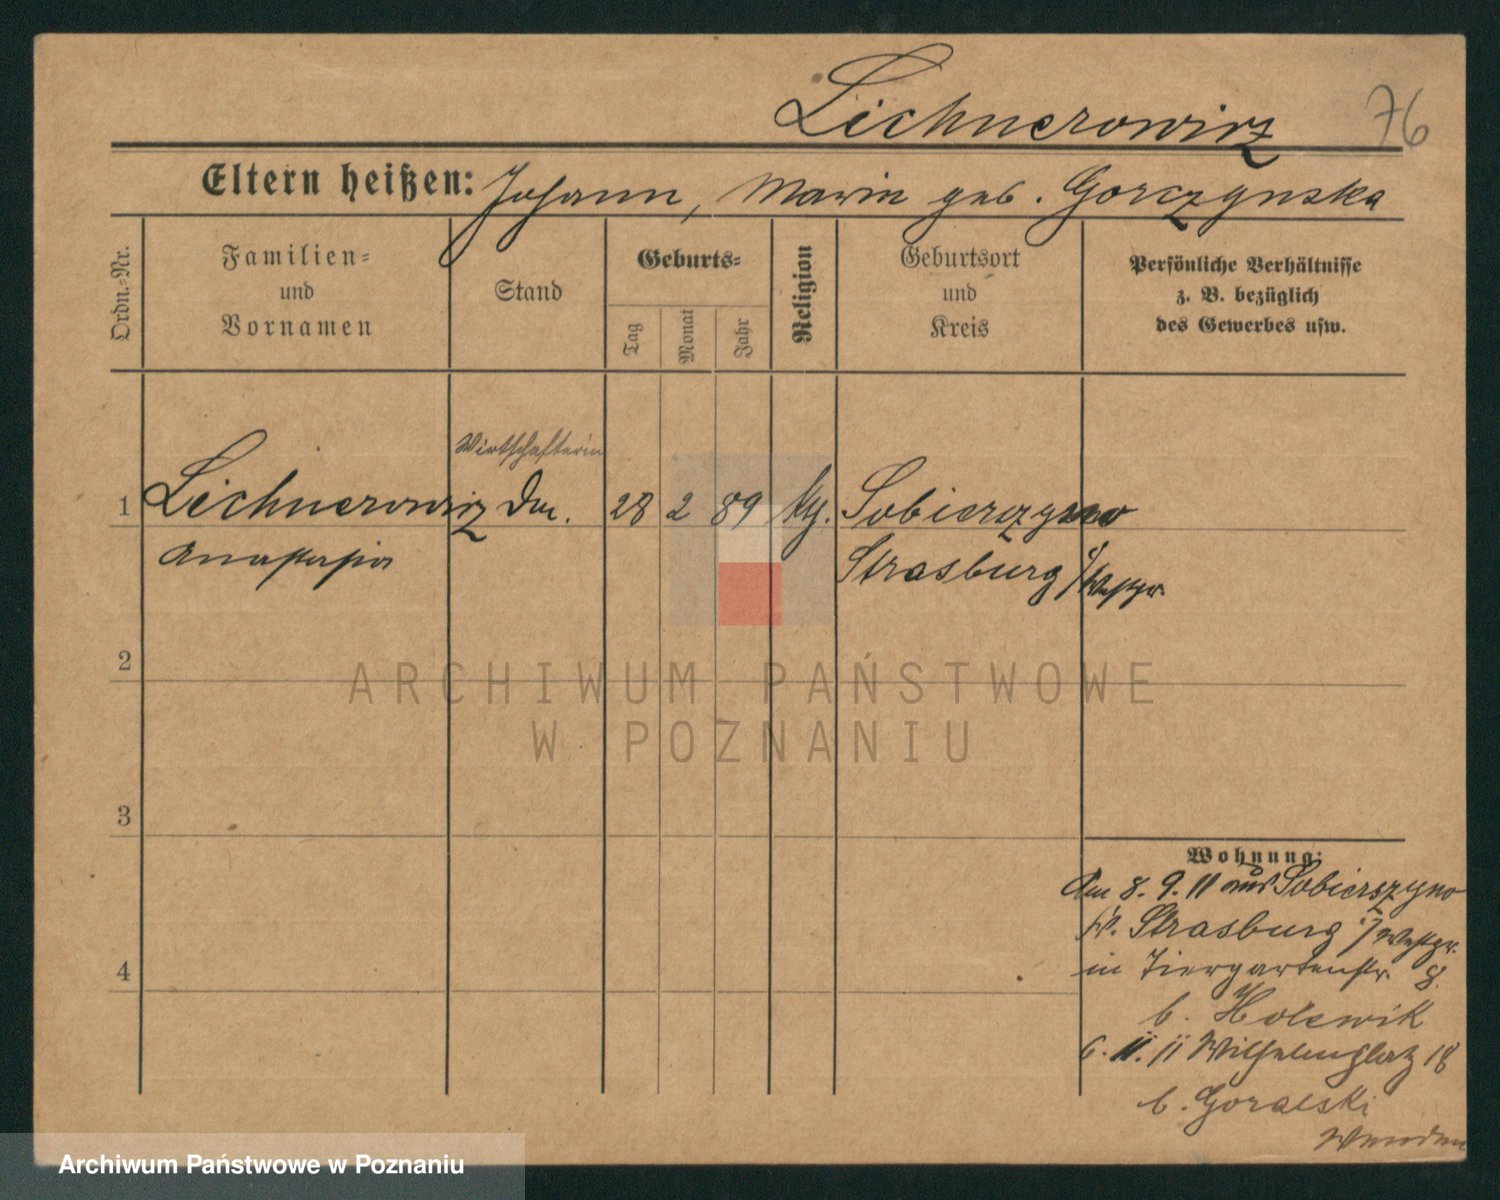 Lichnerowicz 76
Eltern heißen: Johann, Maria geb. Gorczynska
Ordn.-Nr.
Familien-
und
Vornamen
Stand
Geburts-
Tag
Monat
Jahr
Religion
Geburtsort
und
Kreis
Persönliche Verhältnisse
z. B. bezüglich
des Gewerbes usw.
Wirtschafterin
1 Lichnerowicz 28 2 89 Sobierczyno
Anastasia Strasburg i/Westpr.
2
3
4
ARCHIWUM PAŃSTWOWE
W POZNANIU
Wohnung:
Am 8. 9. 11 aus Sobierszyno
Kr. Strasburg i/Westpr.
in Tiergartenstr. 8.
b. Holewik
6. 11. 11 Wilhelmsplatz 18
b. Goralski
Archiwum Państwowe w Poznaniu